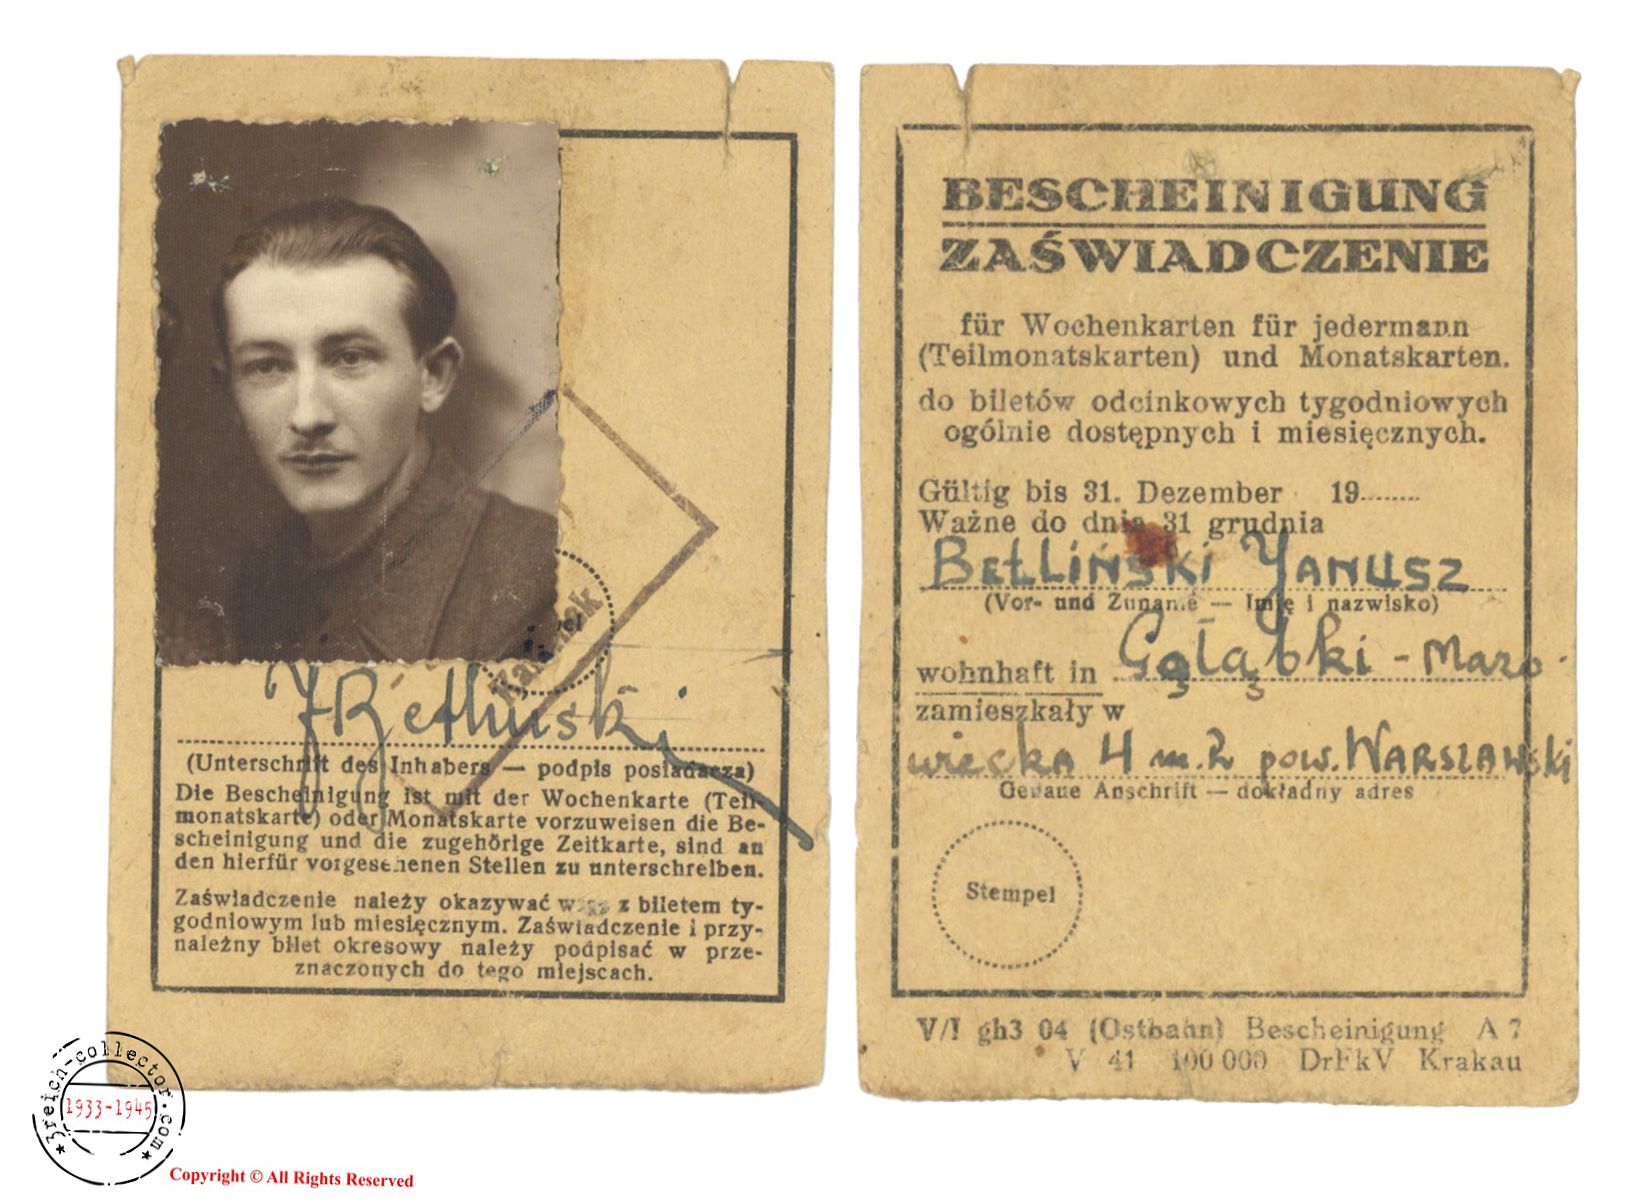 J Betliński
(Unterschrift des Inhabers — podpis posiadacza)
Die Bescheinigung ist mit der Wochenkarte (Teil-
monatskarte) oder Monatskarte vorzuweisen die Be-
scheinigung und die zugehörige Zeitkarte, sind an
den hierfür vorgesehenen Stellen zu unterschreiben.
Zaświadczenie należy okazywać z biletem ty-
godniowym lub miesięcznym. Zaświadczenie i przy-
należny bilet okresowy należy podpisać w prze-
znaczonych do tego miejscach.
BESCHEINIGUNG
ZAŚWIADCZENIE
für Wochenkarten für jedermann
(Teilmonatskarten) und Monatskarten.
do biletów odcinkowych tygodniowych
ogólnie dostępnych i miesięcznych.
Gültig bis 31. Dezember 19........
Ważne do dnia 31 grudnia
BETLIŃSKI JANUSZ
(Vor- und Zuname — Imię i nazwisko)
wohnhaft in Gołąbki - Mazo
zamieszkały w
wiecka 4 m. 2 pow. WARSZAWSKI
Genaue Anschrift — dokładny adres
Stempel
V/I gh3 04 (Ostbahn) Bescheinigung A 7
V 41 100 000 DrFkV Krakau
3reich-collector.com
1933-1945
Copyright © All Rights Reserved